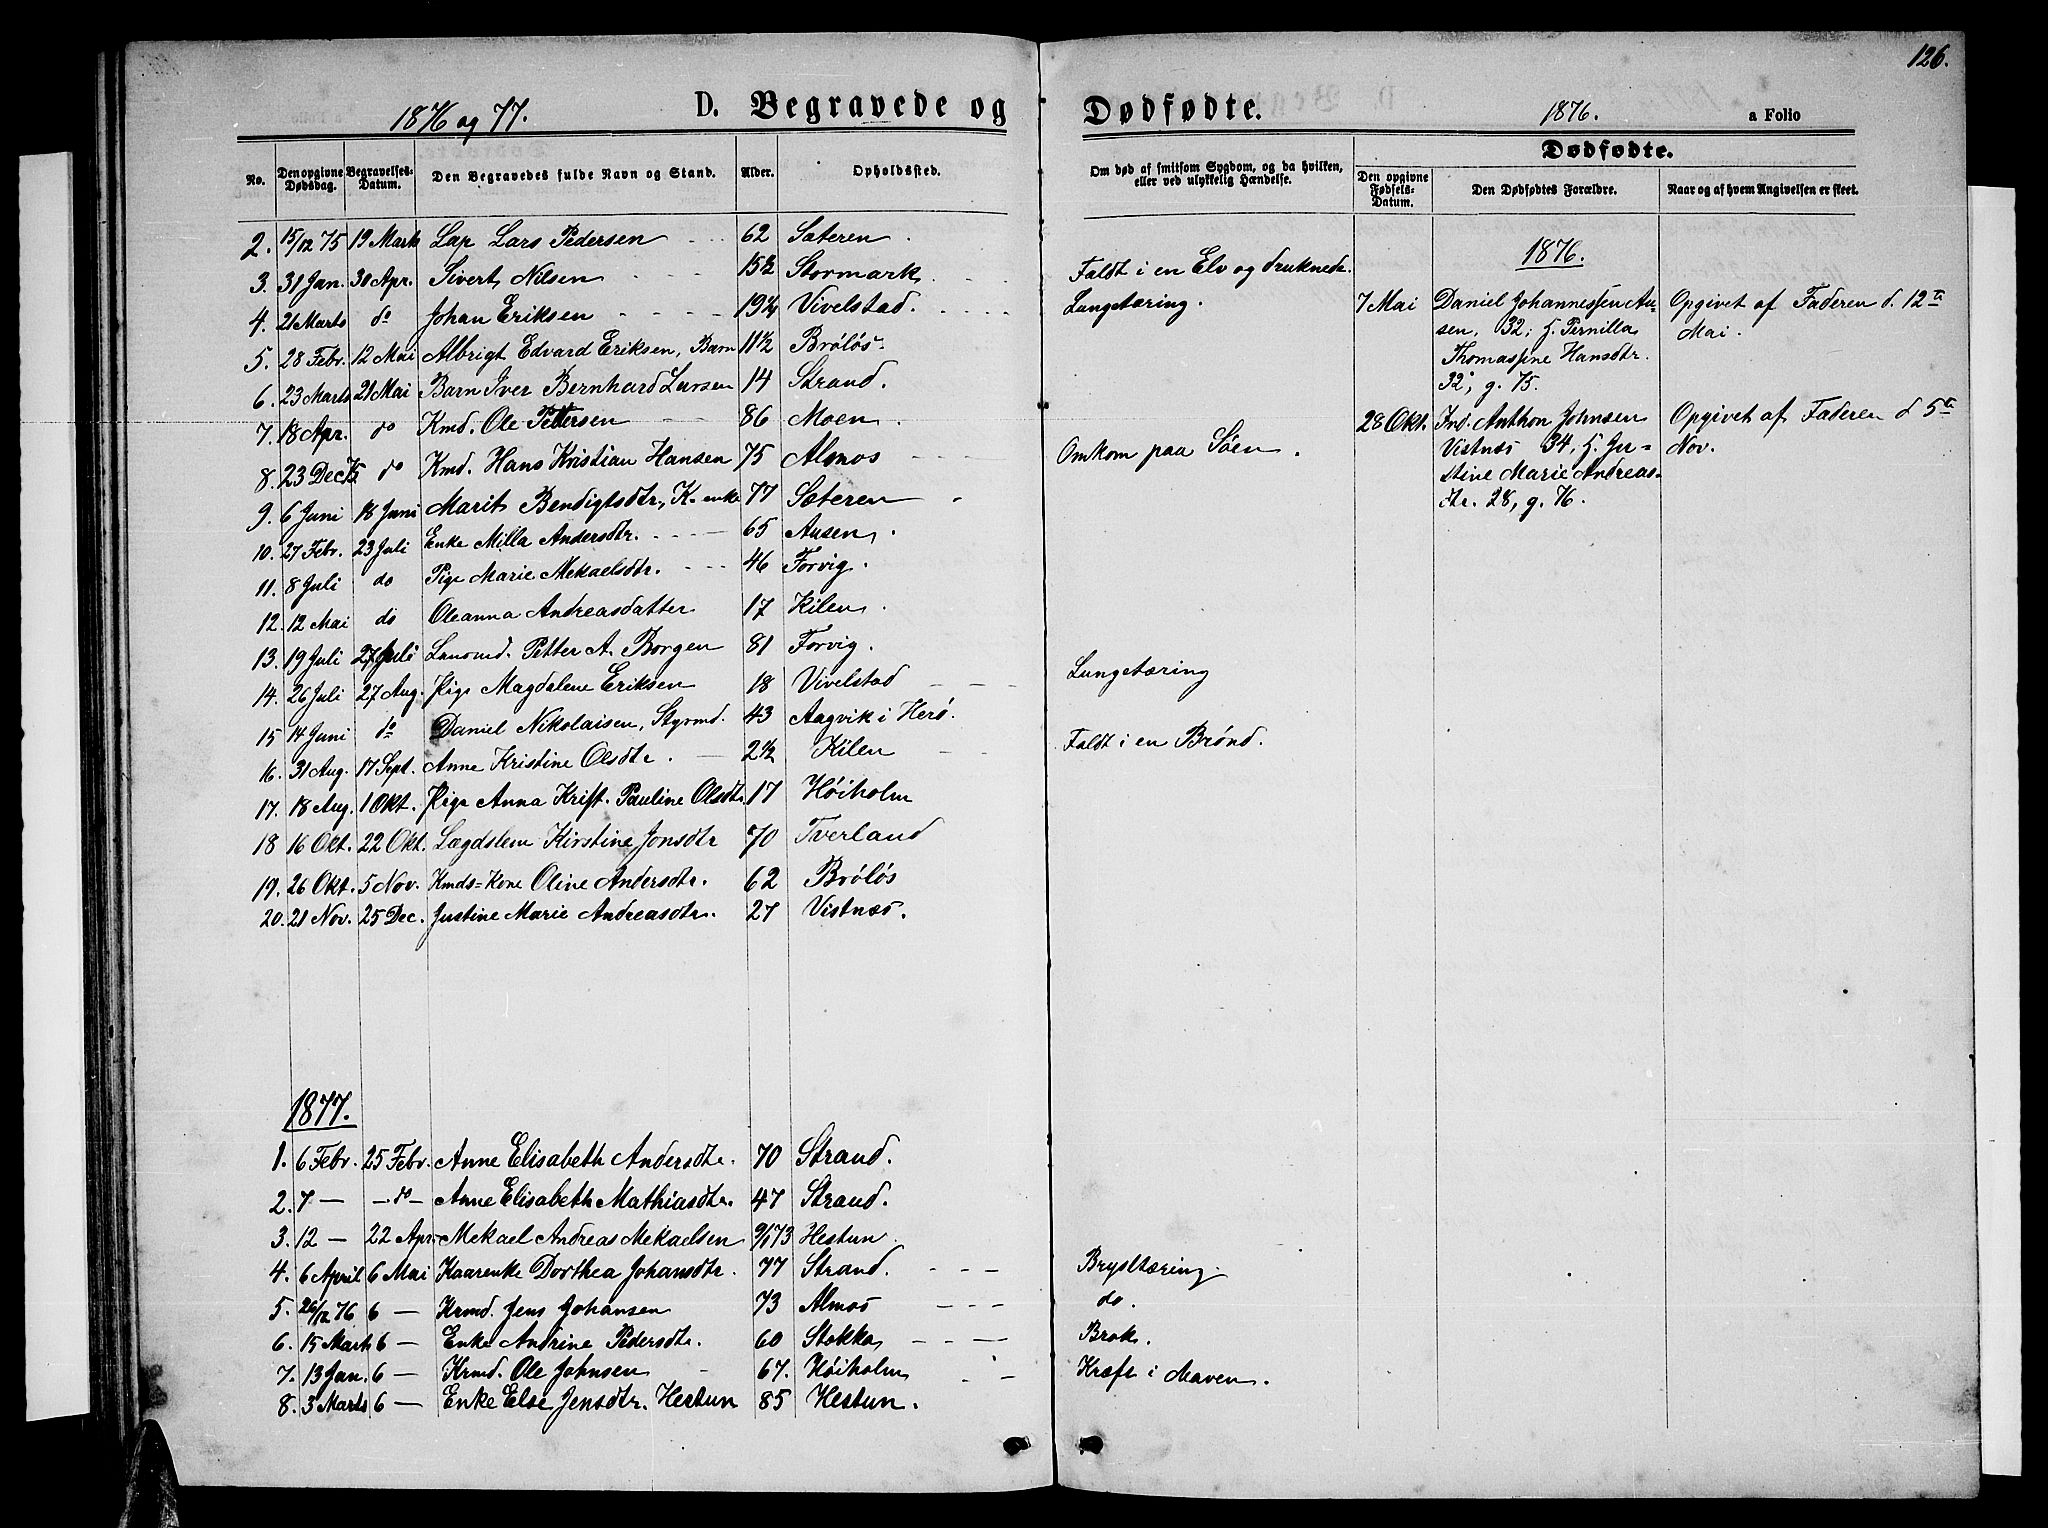 126.
1876 og 77. D. Begravede og Dødfødte. 1876. a Folio
No. Den opgivne Dødsdag. Begravelses-Datum. Den Begravedes fulde Navn og Stand. Alder. Opholdssted.
Om død af smitsom Sygdom, og da hvilken, eller ved ulykkelig Hændelse.
Dødfødte.
Den opgivne Fødsels-Datum. Den Dødfødtes Forældre. Naar og af hvem Angivelsen er skeet.
2. 15/12 75 19 Marts Lap Lars Pedersen 62 Sæteren.
3. 31 Jan. 30 Apr. Sivert Nilsen 15½ Stormark Faldt i en Elv og druknede.
4. 21 Marts do Johan Eriksen Vivelstad. Lungetæring.
5. 28 Febr. 12 Mai Albrigt Edvard Eriksen, Barn 11½ Brøløs
6. 23 Marts 21 Mai Barn Iver Bernhard Larsen 14 Strand.
7. 18 Apr. do Kmd. Ole Pettersen 86 Moen
8. 23 Dec 75 do Kmd. Hans Kristian Hansen 75 Almos Omkom paa Søen.
9. 6 Juni 18 Juni Marit Bendigtsdtr, K. enke 77 Sæteren
10. 27 Febr. 23 Juli Enke Milla Andersdtr. 65 Ausen.
11. 8 Juli do Pige Marie Mekaelsdtr. 46 Forvig.
12. 12 Mai do Oleanna Andreasdatter 17 Kilen.
13. 19 Juli 27 Juli Petter A. Borgen 81 Forvig.
14. 26 Juli 27 Aug. Pige Magdalene Eriksen 18 Vivelstad Lungetæring
15 14 Juni do Daniel Nikolaisen, Styrmd. 43 Aagvik i Herø.
16. 31 Aug. 17 Sept. Anne Kristine Olsdtr. 2½ Kilen Faldt i en Brønd.
17. 18 Aug. 1 Okt. Pige Anna Krist. Pauline Olsdtr 17 Høiholm
18 16 Okt. 22 Okt. Lægdslem Kirstine Jonsdtr 70 Tverland
19. 26 Okt. 5 Nov. Kmds=Kone Oline Andersdtr. 62 Brøløs
20. 21 Nov. 25 Dec. Justine Marie Andreasdtr. 27 Vistnæs.
1877.
1. 6 Febr. 25 Febr. Anne Elisabeth Andersdtr. 70 Strand.
2. 7 — — do — Anne Elisabeth Mathiasdtr. 47 Strand.
3. 12 — 22 Apr. Mekael Andreas Mekaelsen 9/1 73 Hestun
4. 6 April 6 Mai Kaarenke Dorthea Johansdtr. 77 Strand. Brysttæring.
5. 26/12 76 6 — Krmd. Jens Johansen 73 Almos do.
6. 15 Marts 6 — Enke Andrine Pedersdtr. 60 Stokka Brok.
7. 13 Jan. 6 — Krmd. Ole Johnsen 67. Høiholm Kræft i Maven.
8. 3 Marts 6 — Enke Else Jensdtr. Hestun 85 Hestun.
1876.
7 Mai Daniel Johannessen Au- Opgivet af Faderen d. 12te
sen, 32; h. Pernilla Mai.
Thomassine Hansdtr.
32, g. 75.
28 Okt. Ind. Anthon Johnsen Opgivet af Faderen d 5te
Vistnæs 34, h. Ju= Nov.
stine Marie Andreas-
dtr. 28, g. 76.